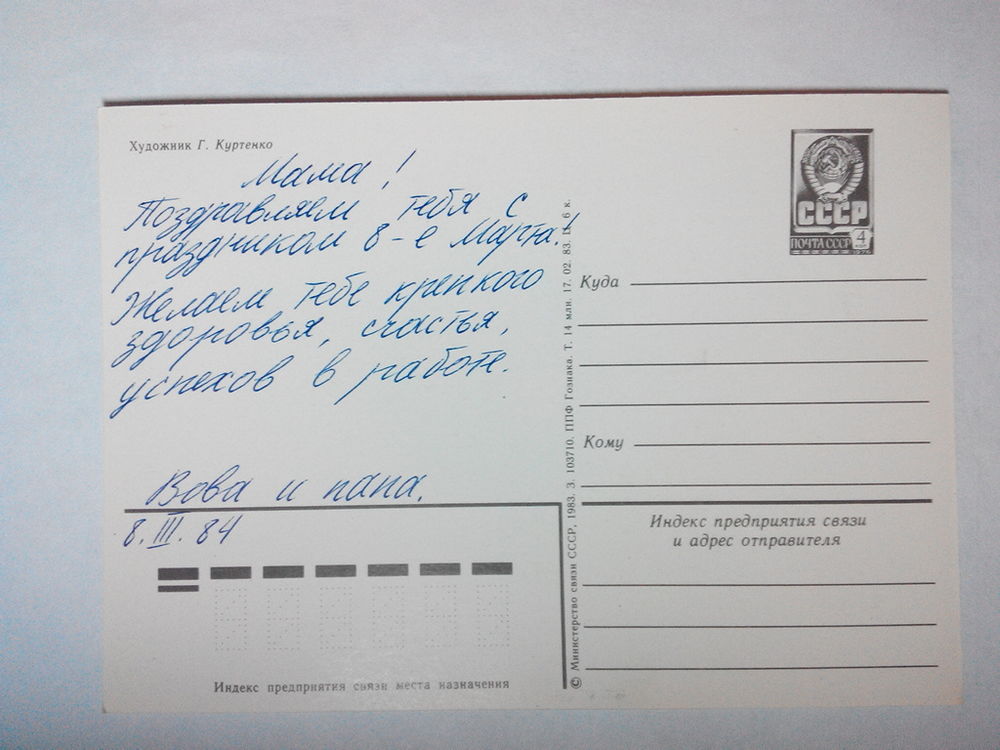 Художник Г. Куртенко
Мама!
Поздравляем тебя с
праздником 8-е Марта!
Желаем тебе крепкого
здоровья, счастья,
успехов в работе.
Вова и папа.
8.III.84
Индекс предприятия связи места назначения
© Министерство связи СССР, 1983. З. 103710. ППФ Гознака. Т. 14 млн. 17. 02. 83. Ц. 6 к.
СССР
ПОЧТА СССР 4
Куда
Кому
Индекс предприятия связи
и адрес отправителя